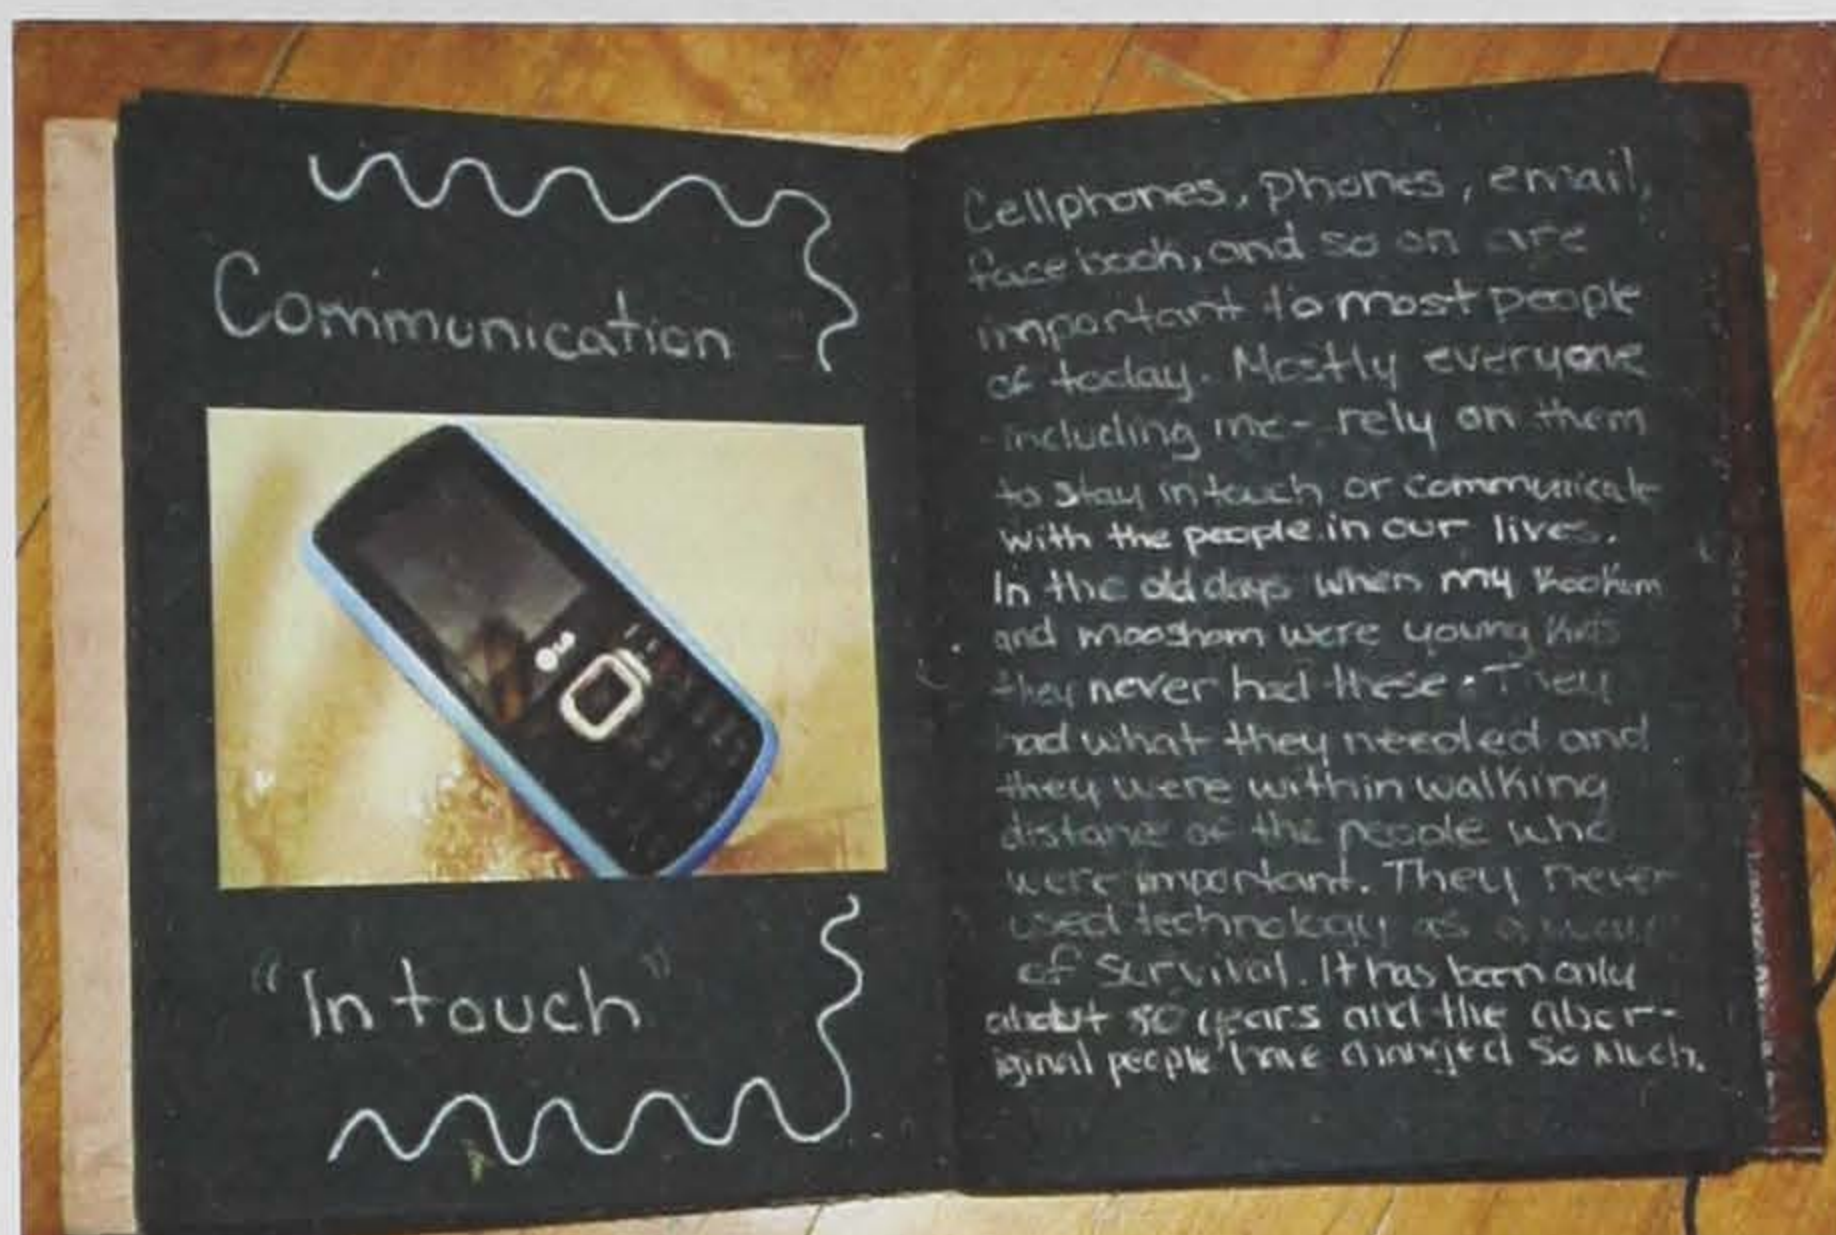 Communication
"In touch"
Cellphones, phones, email,
facebook, and so on are
important to most people
of today. Mostly everyone
-including me- rely on them
to stay in touch or communicate
with the people in our lives.
In the old days when my Kookum
and moosham were young kids
they never had these. They
had what they needed and
they were within walking
distance of the people who
were important. They never
used technology as a way
of survival. It has been only
about 80 years and the abor-
iginal people have changed so much.